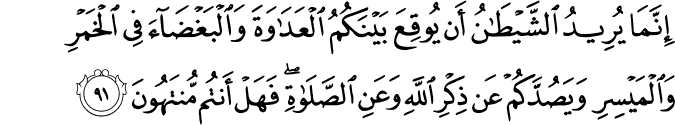 إِنَّمَا يُرِيدُ ٱلشَّيْطَـٰنُ أَن يُوقِعَ بَيْنَكُمُ ٱلْعَدَٰوَةَ وَٱلْبَغْضَآءَ فِى ٱلْخَمْرِ
وَٱلْمَيْسِرِ وَيَصُدَّكُمْ عَن ذِكْرِ ٱللَّهِ وَعَنِ ٱلصَّلَوٰةِ ۖ فَهَلْ أَنتُم مُّنتَهُونَ ٩١